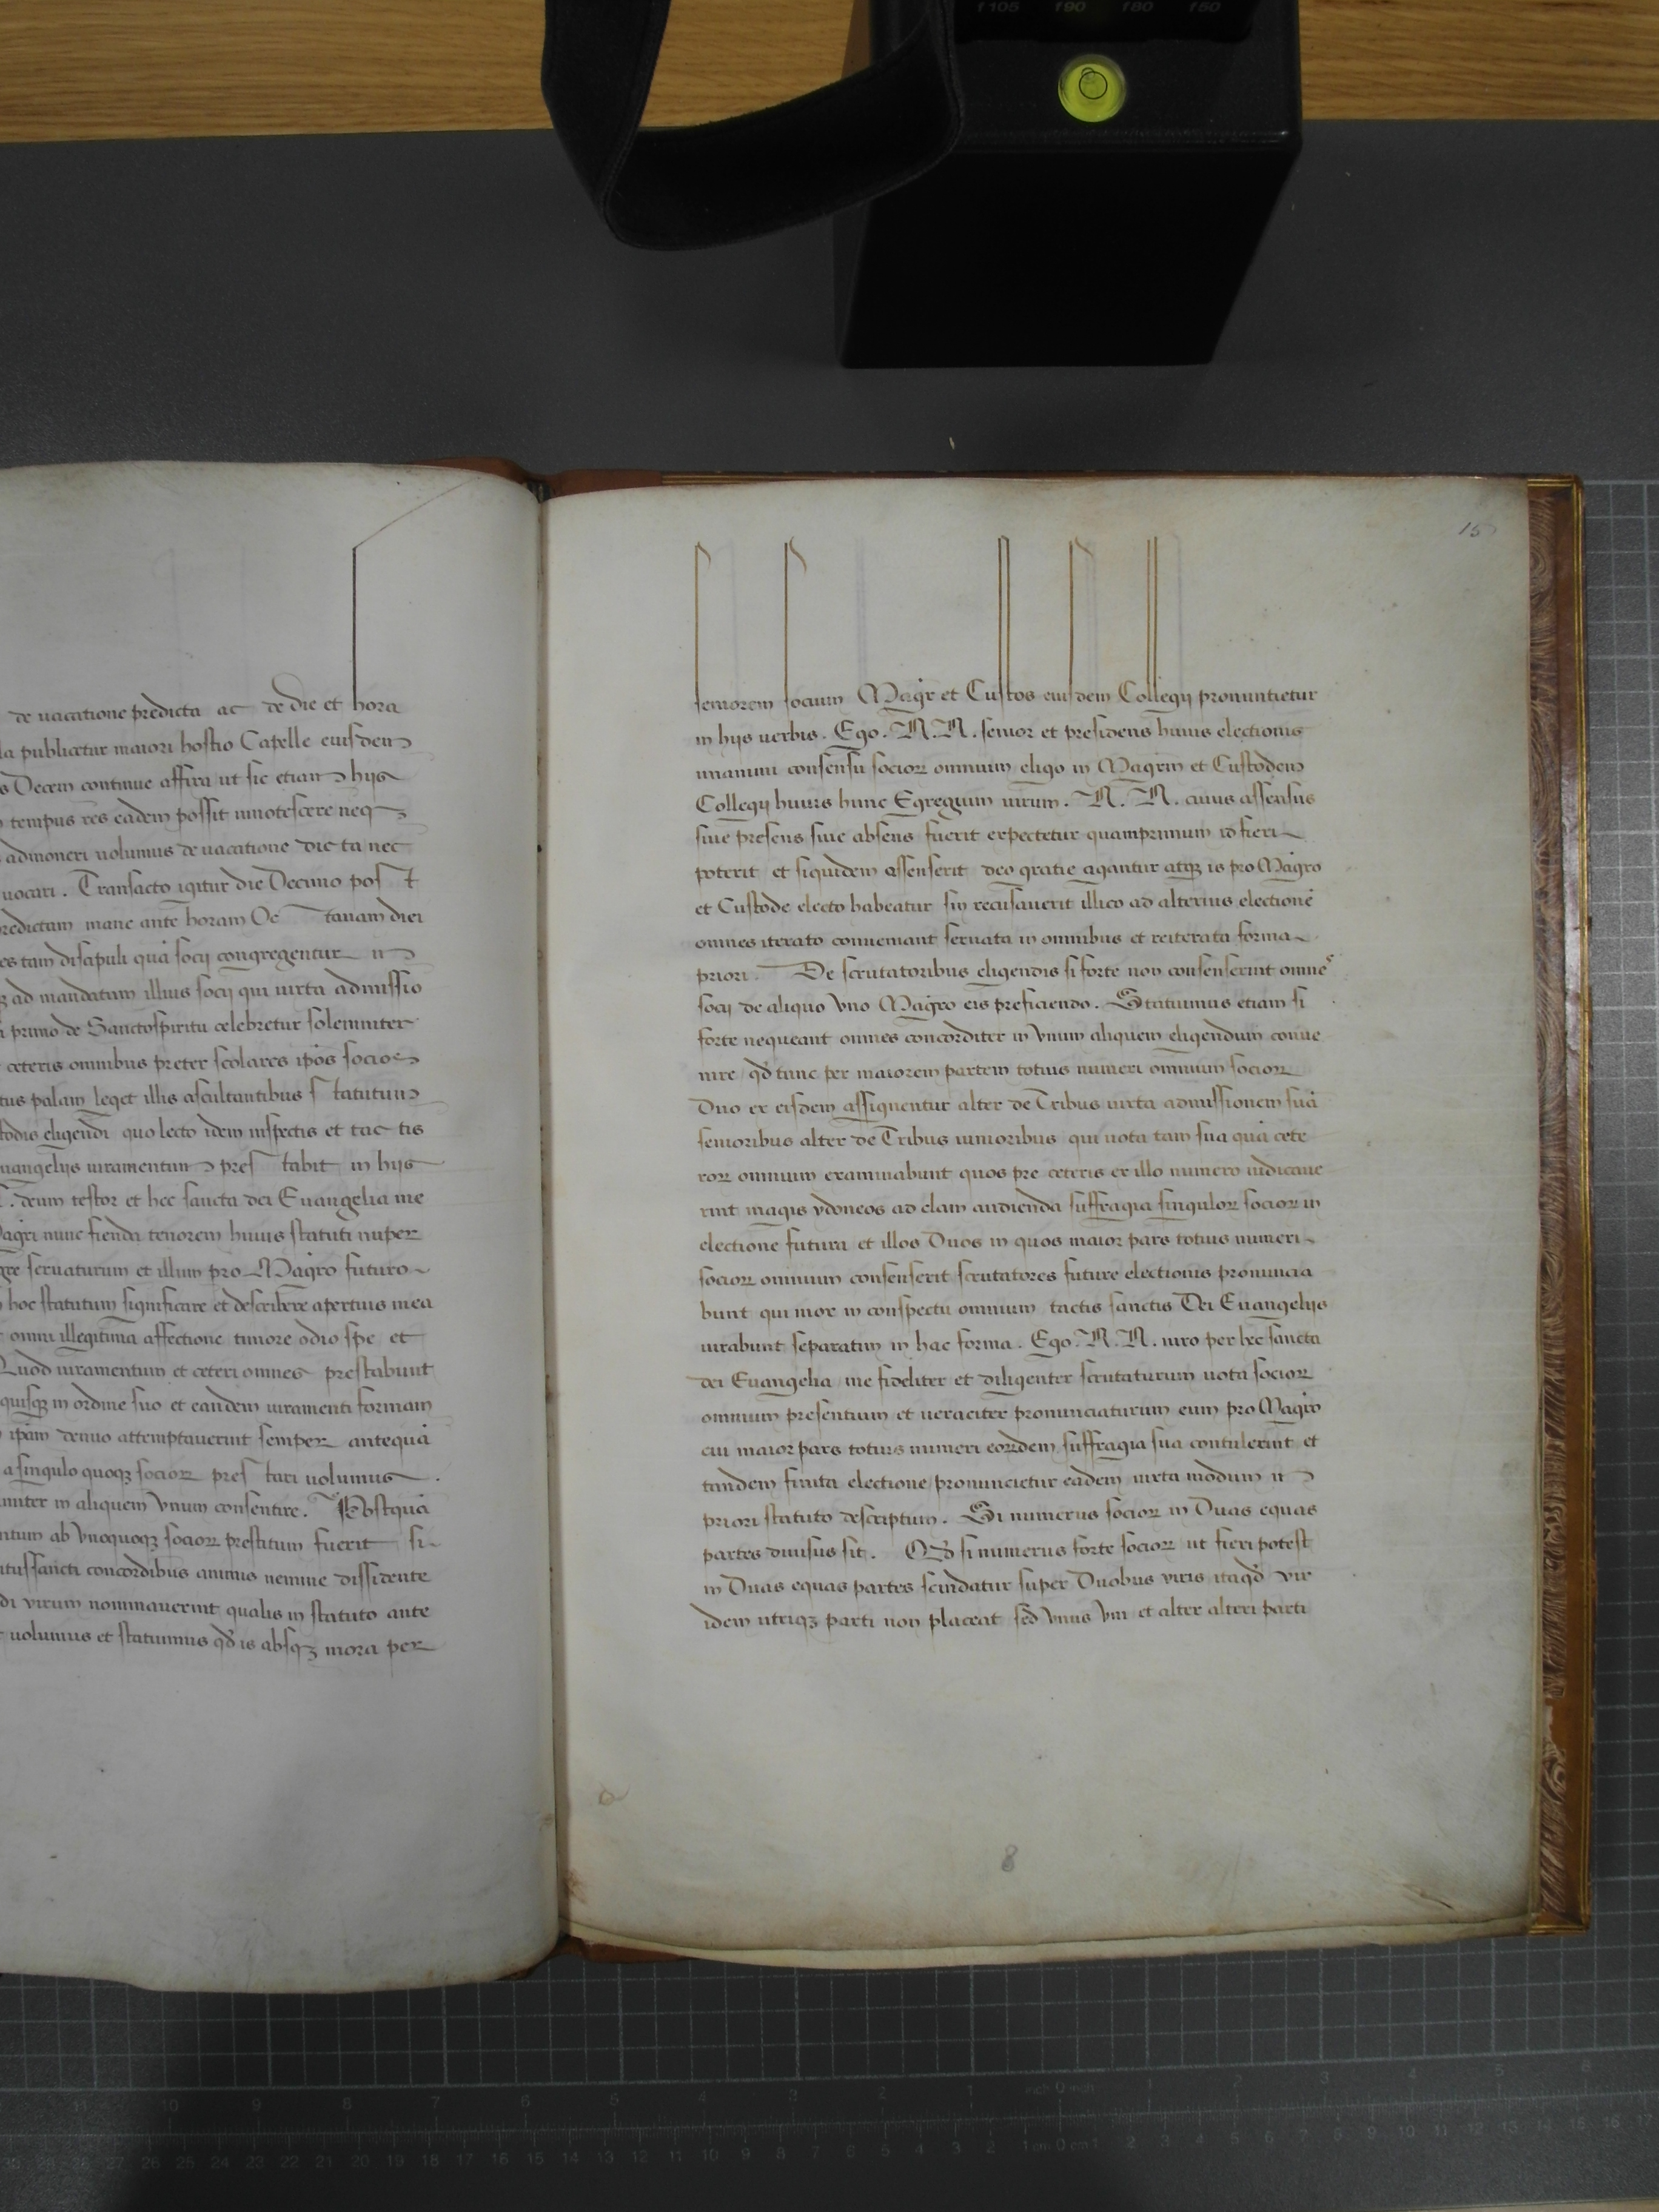 de vacatione predicta ac de die et hora
la publicetur maiori hostio Capelle eiusdem
s Decem continue affixa ut sic etiam hijs
tempus res eadem possit innotescere neqz
admoneri uolumus de uacatione dicta nec
uocari. Transacto igitur die Decimo post
redictam mane ante horam Octauam diei
es tam discipuli quā socij congregentur in
ad mandatum illius socij qui iuxta admissio
primo de Sanctospiritu celebretur solemniter
ceteris omnibus preter scolares ip̄os socios
tus palam leget illis ascultantibus statutum
todis eligendi quo lecto idem inspectis et tactis
uangelijs iuramentum prestabit in hijs
deum testor et hec sancta dei Euangelia me
agri nunc fienda tenorem huius statuti nuper
gre seruaturum et illum pro Mag̅ro futuro
hoc statutum significare et describere apertius mea
omni illegitima affectione timore odio spe et
Quod iuramentum et ceteri omnes prestabunt
quisqz in ordine suo et eandem iuramenti formam
ip̄am denuo attemptauerint semper antequā
a singulo quoqz socioꝝ prestari uolumus.
nniter in aliquem Vnum consentire. Postquā
ntum ab Vnoquoqz socioꝝ prestitum fuerit si
itussancti concordibus animis nemine dissidente
di virum nominauerint qualis in statuto ante
uolumus et statuimus qđ is absqz mora per
15
seniorem socium Magr̄ et Custos eiusdem Collegij pronuntietur
in hijs uerbis. Ego. N. N. senior et presidens huius electionis
unanimi consensu socioꝝ omnium eligo in Magr̄m et Custodem
Collegij huius hunc Egregium uirum. N. N. cuius assensus
siue presens siue absens fuerit expectetur quamprimum id fieri
poterit et siquidem assenserit deo gratie agantur atqz is pro Mag̅ro
et Custode electo habeatur sin recusauerit illico ad alterius electionē
omnes iterato conueniant seruata in omnibus et reiterata forma
priori. De scrutatoribus eligendis si forte non consenserint omnes
socij de aliquo Vno Mag̅ro eis preficiendo. Statuimus etiam si
forte nequeant omnes concorditer in Vnum aliquem eligendum conue
nire qđ tunc per maiorem partem totius numeri omnium socioꝝ
Duo ex eisdem assignentur alter de Tribus iuxta admissionem suā
senioribus alter de Tribus iunioribus qui uota tam sua quā cete
roꝝ omnium examinabunt quos pre ceteris ex illo numero iudicaue
rint magis ydoneos ad clam audienda suffragia singuloꝝ socioꝝ in
electione futura et illos Duos in quos maior pars totius numeri
socioꝝ omnium consenserit scrutatores future electionis pronuncia
bunt qui mox in conspectu omnium tactis sanctis Dei Euangelijs
iurabunt separatim in hac forma. Ego. N. N. iuro per hec sancta
dei Euangelia me fideliter et diligenter scrutaturum uota socioꝝ
omnium presentium et ueraciter pronunciaturum eum pro Mag̅ro
cui maior pars totius numeri eoꝝdem suffragia sua contulerint et
tandem finita electione pronuncietur eadem iuxta modum in
priori statuto descriptum. Si numerus socioꝝ in Duas equas
partes diuisus sit. Qđ si numerus forte socioꝝ ut fieri potest
in Duas equas partes scindatur super Duobus viris itaqđ vir
idem utriqz parti non placeat sed Vnus Vni et alter alteri parti
8